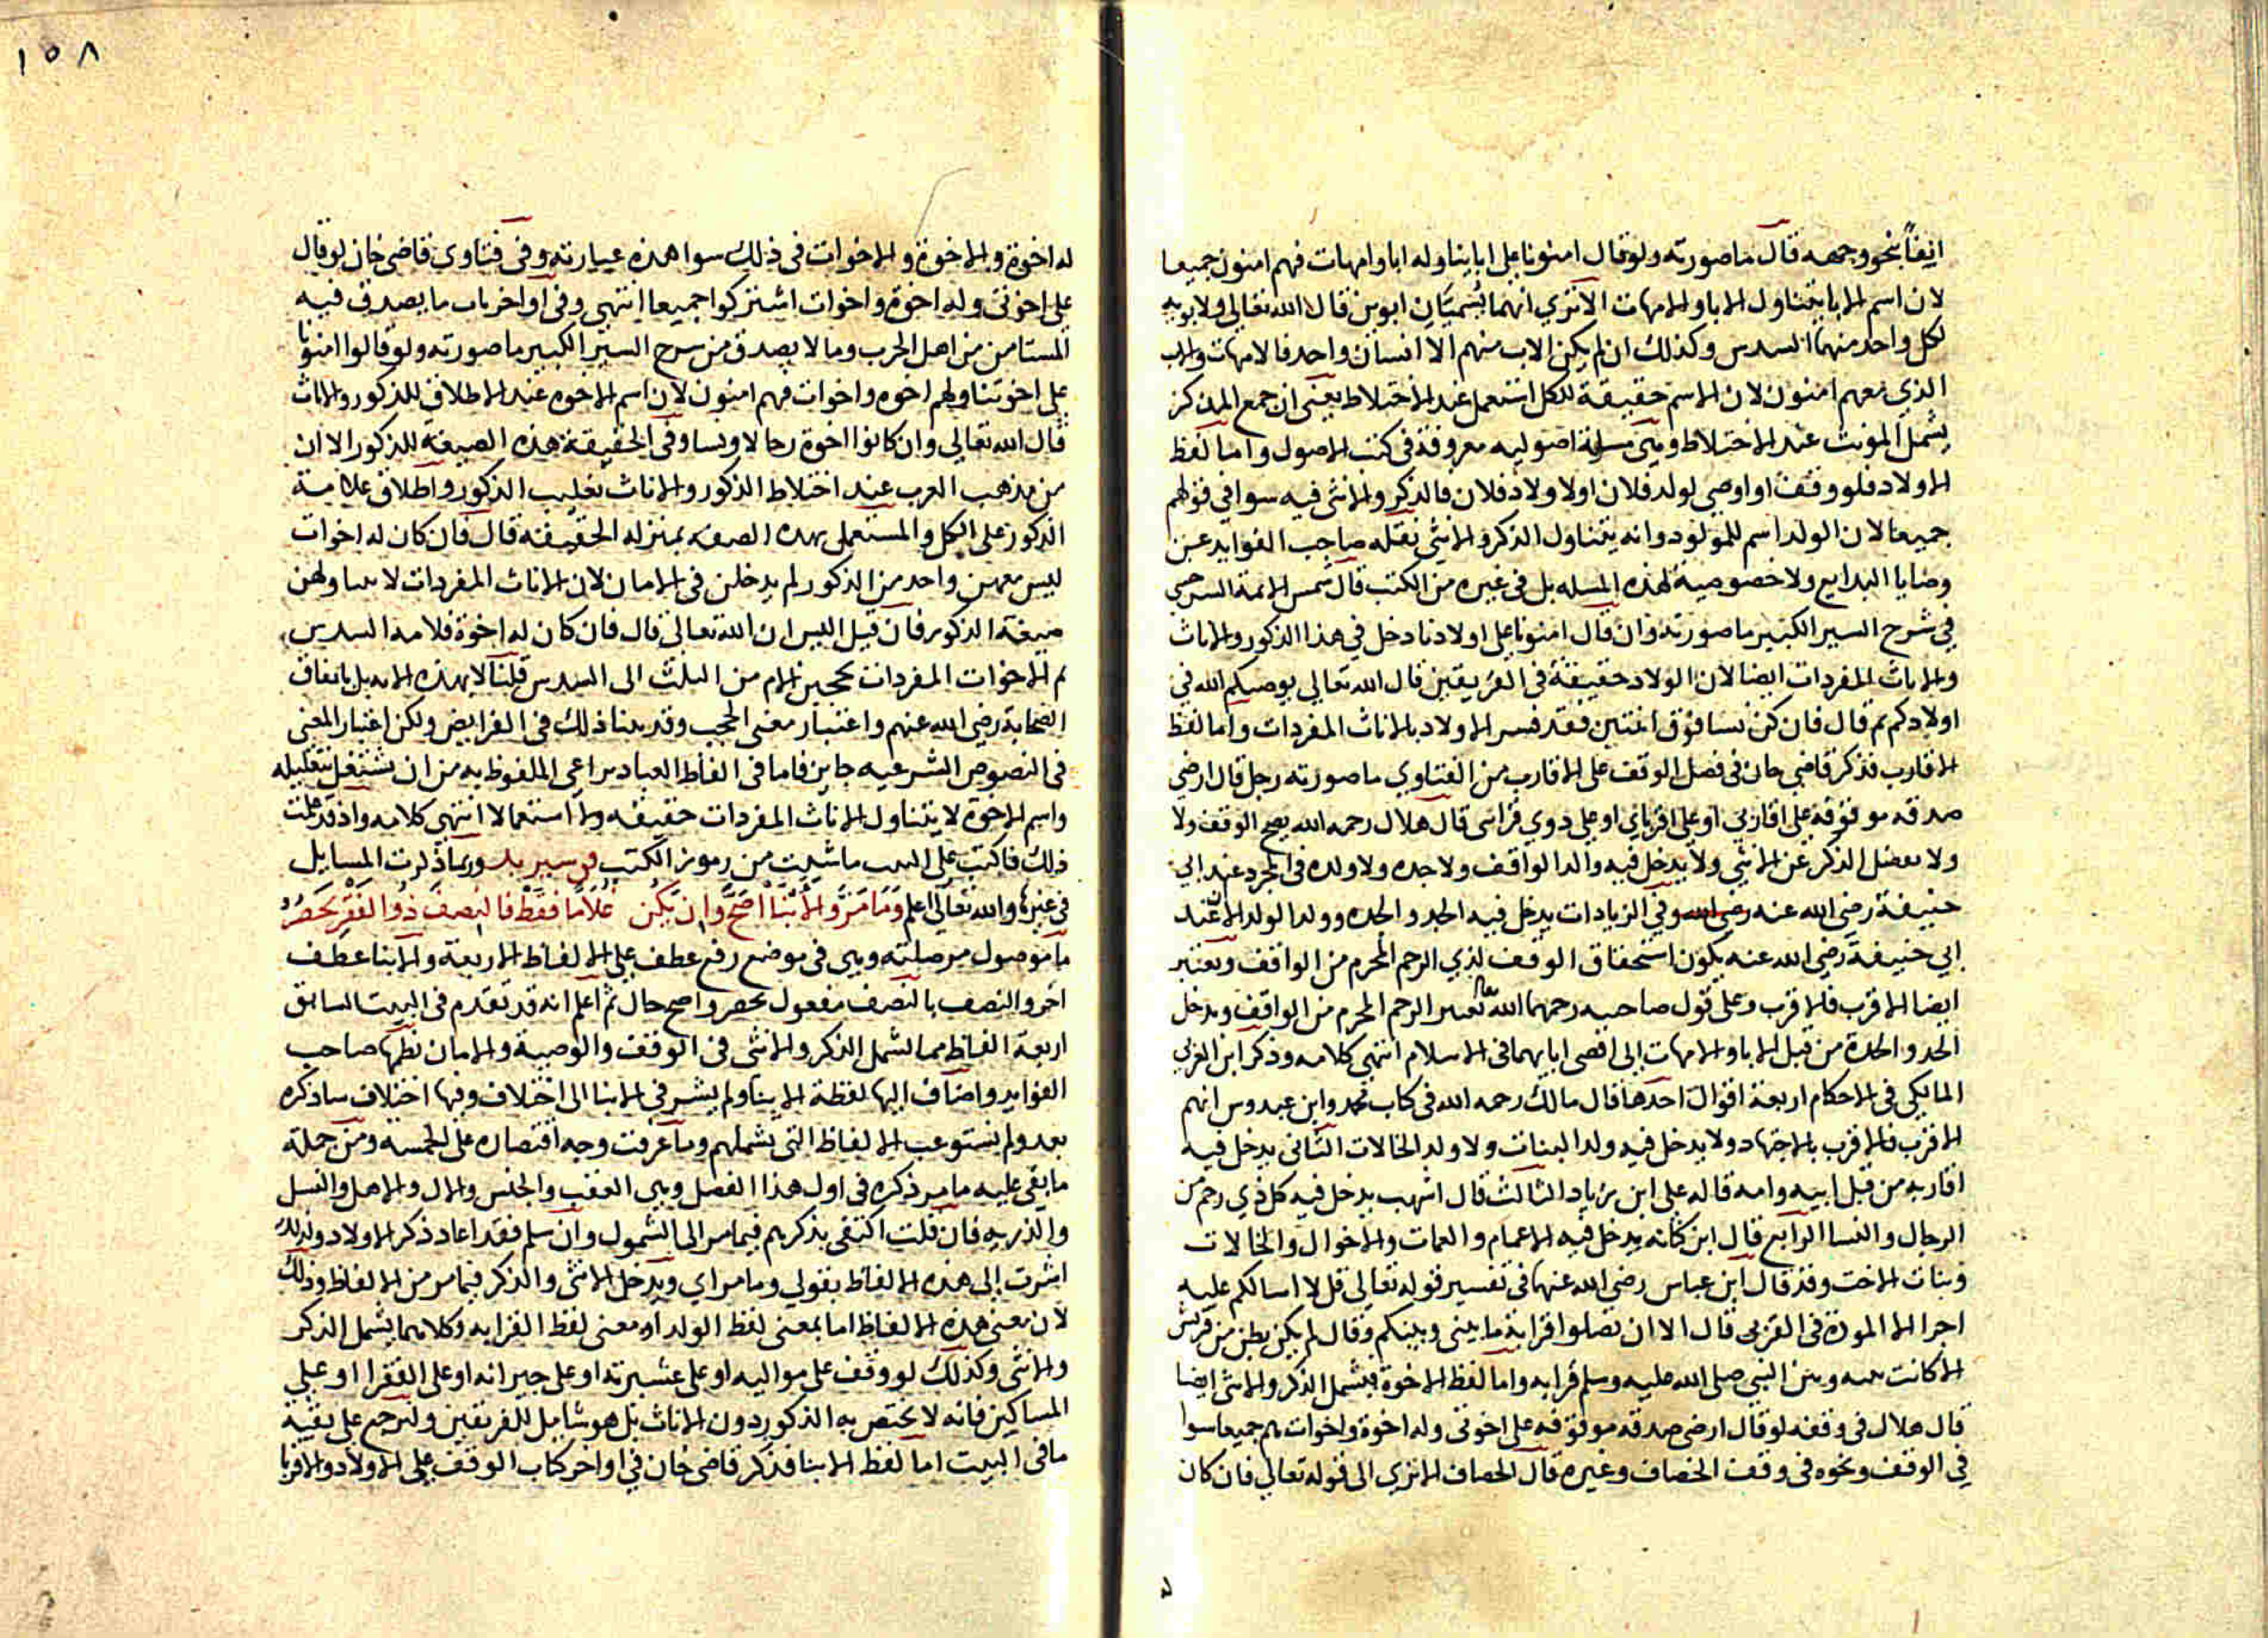 ايضا بنحو وجهه قال ما صورته ولو قال امنونا على ابائنا وله ابا وامهات فهم امنون جميعا
لان اسم الابا يتناول الابا والامهات الا تري انهما يسميان ابوين قال الله تعالي ولابويه
لكل واحد منهما السدس وكذلك ان لم يكن الاب منهم الا انسان واحد فالامهات والاب
الذي معهم امنون لان الاسم حقيقة للكل استعمل عند الاختلاط يعني ان جمع المذكر
يشمل المونث عند الاختلاط وهي مسلة اصوليه معروفة في كتب الاصول واما لفظ
الاولاد فلو وقف او اوصي لولد فلان او لاولاد فلان فالذكر والانثي فيه سوا في قولهم
جميعا لان الولد اسم للمولود وانه يتناول الذكر والانثي نقله صاحب الفوايد عن
وصايا البدايع ولا خصوصية لهذه المسله بل في غيره من الكتب قال شمس الايمة السرخسي
في شرح السير الكبير ما صورته وان قال امنونا على اولادنا دخل في هذا الذكور والاناث
والاناث المفردات ايضا لان الاولاد حقيقة في الفريقين قال الله تعالي يوصيكم الله في
اولادكم ثم قال فان كن نسا فوق اثنتين فقد فسر الاولاد بالاناث المفردات واما لفظ
الاقارب فذكر قاضي خان في فصل الوقف على الاقارب من الفتاوي ما صورته رجل قال ارضي
صدقه موقوفه على اقاربي او على اقرباي او علي ذوي قرابتي قال هلال رحمه الله يصح الوقف ولا
ولا يفضل الذكر عن الانثي ولا يدخل فيه والد الواقف ولا جده ولا ولده في المجرد عند ابي
حنيفة رضي الله عنه وفي الزيادات يدخل فيه الجد والجده وولد الولد لان عند
ابي حنيفة رضي الله عنه يكون استحقاق الوقف لذي الرحم المحرم من الواقف ويعتبر
ايضا الاقرب فالاقرب وعلى قول صاحبيه رحمهما الله تعتبر الرحم المحرم من الواقف ويدخل
الجد والجدة من قبل الابا والامهات الى اقصى ابايهما في الاسلام انتهي كلامه وذكر ابن العربي
المالكي في الاحكام اربعة اقوال احدها قال مالك رحمه الله في كتاب محمد وابن عبدوس انهم
الاقرب فالاقرب بالاجتهاد ولا يدخل فيه ولد البنات ولا ولد الخالات الثاني يدخل فيه
اقاربه من قبل ابيه وامه قاله على ابن زياد الثالث قال اشهب يدخل فيه كل ذي رحم من
الرجال والنسا الرابع قال ابن كنانه يدخل فيه الاعمام والعمات والاخوال والخالات
وبنات الاخت وقد قال ابن عباس رضي الله عنهما في تفسير قوله تعالي قل لا اسالكم عليه
اجرا الا المودة في القربى قال الا ان تصلوا قرابة ما بيني وبينكم وقال لم يكن بطن من قريش
الا كانت بينه وبين النبي صلى الله عليه وسلم قرابه واما لفظ الاخوة فيشمل الذكر والانثى ايضا
قال هلال في وقفه لو قال ارضي صدقه موقوفه على اخوتي وله اخوة واخوات هم جميعا سوا
في الوقف ونحوه في وقف الخصاف وغيره قال الخصاف الا تري الى قوله تعالي فان كان
١٥٨
له اخوة والاخوة والاخوات في ذلك سوا هذه عبارته وفي فتاوي قاضي خان لو قال
على اخوتي وله اخوة واخوات اشتركوا جميعا انتهي وفي اواخر باب ما يصدق فيه
المستامن من اهل الحرب وما لا يصدق من شرح السير الكبير ما صورته ولو قالوا امنونا
على اخوتنا ولهم اخوه واخوات فهم امنون لان اسم الاخوه عند الاطلاق للذكور والاناث
قال الله تعالي وان كانوا اخوة رجالا ونسا وفي الحقيقة هذه الصيغه للذكور الا ان
من مذهب العرب عند اختلاط الذكور والاناث تغليب الذكور واطلاق علامة
الذكور على الكل والمستعمل بهذه الصفه بمنزله الحقيقه قال فان كان له اخوات
ليس معهن واحد من الذكور لم يدخلن في الامان لان الاناث المفردات لا يتناولهن
صيغة الذكور فان قيل اليس ان الله تعالى قال فان كان له اخوة فلامه السدس
ثم الاخوات المفردات يحجبن الام من الثلث الى السدس قلنا لا بهذه الايه بل باتفاق
الصحابة رضي الله عنهم واعتبار معنى الحجب وقد بينا ذلك في الفرايض ولكن اعتبار المعنى
في النصوص الشرعيه جايز فاما في الفاظ العباد يراعي الملفوظ به من ان يشتغل بتعليله
واسم الاخوة لا يتناول الاناث المفردات حقيقه ولا استعمالا انتهي كلامه واذ قد علمت
ذلك فاكتب على البيت ما شيت من رموز الكتب وربما ذكرت المسايل
في غيرها والله تعالى اعلم وما مر والابنا اصح وان يكن غلاما فقط فالنصف ذو الفقر يحصر
ما موصول مر صلته وهي في موضع رفع عطف على الالفاظ الاربعة والابنا عطف
اخر والنصف بالنصف مفعول يحصر واصح حال ثم اعلم انه قد تقدم في البيت السابق
اربعة الفاظ مما يشمل الذكر والانثى في الوقف والوصية والامان نظمها صاحب
الفوايد واضاف اليها لفظة الابنا ولم يشر في الابنا الى اختلاف وفيها اختلاف ساذكره
بعد ولم يستوعب الالفاظ التي يشملهم وما عرفت وجه اقتصاره على الخمسة ومن جملة
ما بقى عليه ما مر ذكره في اول هذا الفصل وهي العقب والجنس والال والاهل والنسل
والذريه فان قلت اكتفى بذكرهم فيما مر الى الشمول وان سلم فقد اعاد ذكر الاولاد ولذلك
اشرت الى هذه الالفاظ بقولي وما مر اي ويدخل الانثى والذكر فيما مر من الالفاظ وذلك
لان معنى هذه الالفاظ اما بمعنى لفظ الولد او معنى لفظ القرابه وكلاهما يشمل الذكر
والانثى وكذلك لو وقف على مواليه او على عشيرته او على جيرانه او على الفقرا او على
المساكين فانه لا يختص به الذكور دون الاناث بل هو شامل للفريقين ولنرجع على بقية
ما في البيت اما لفظ الابنا فذكر قاضي خان في اواخر كتاب الوقف على الاولاد والاقربا